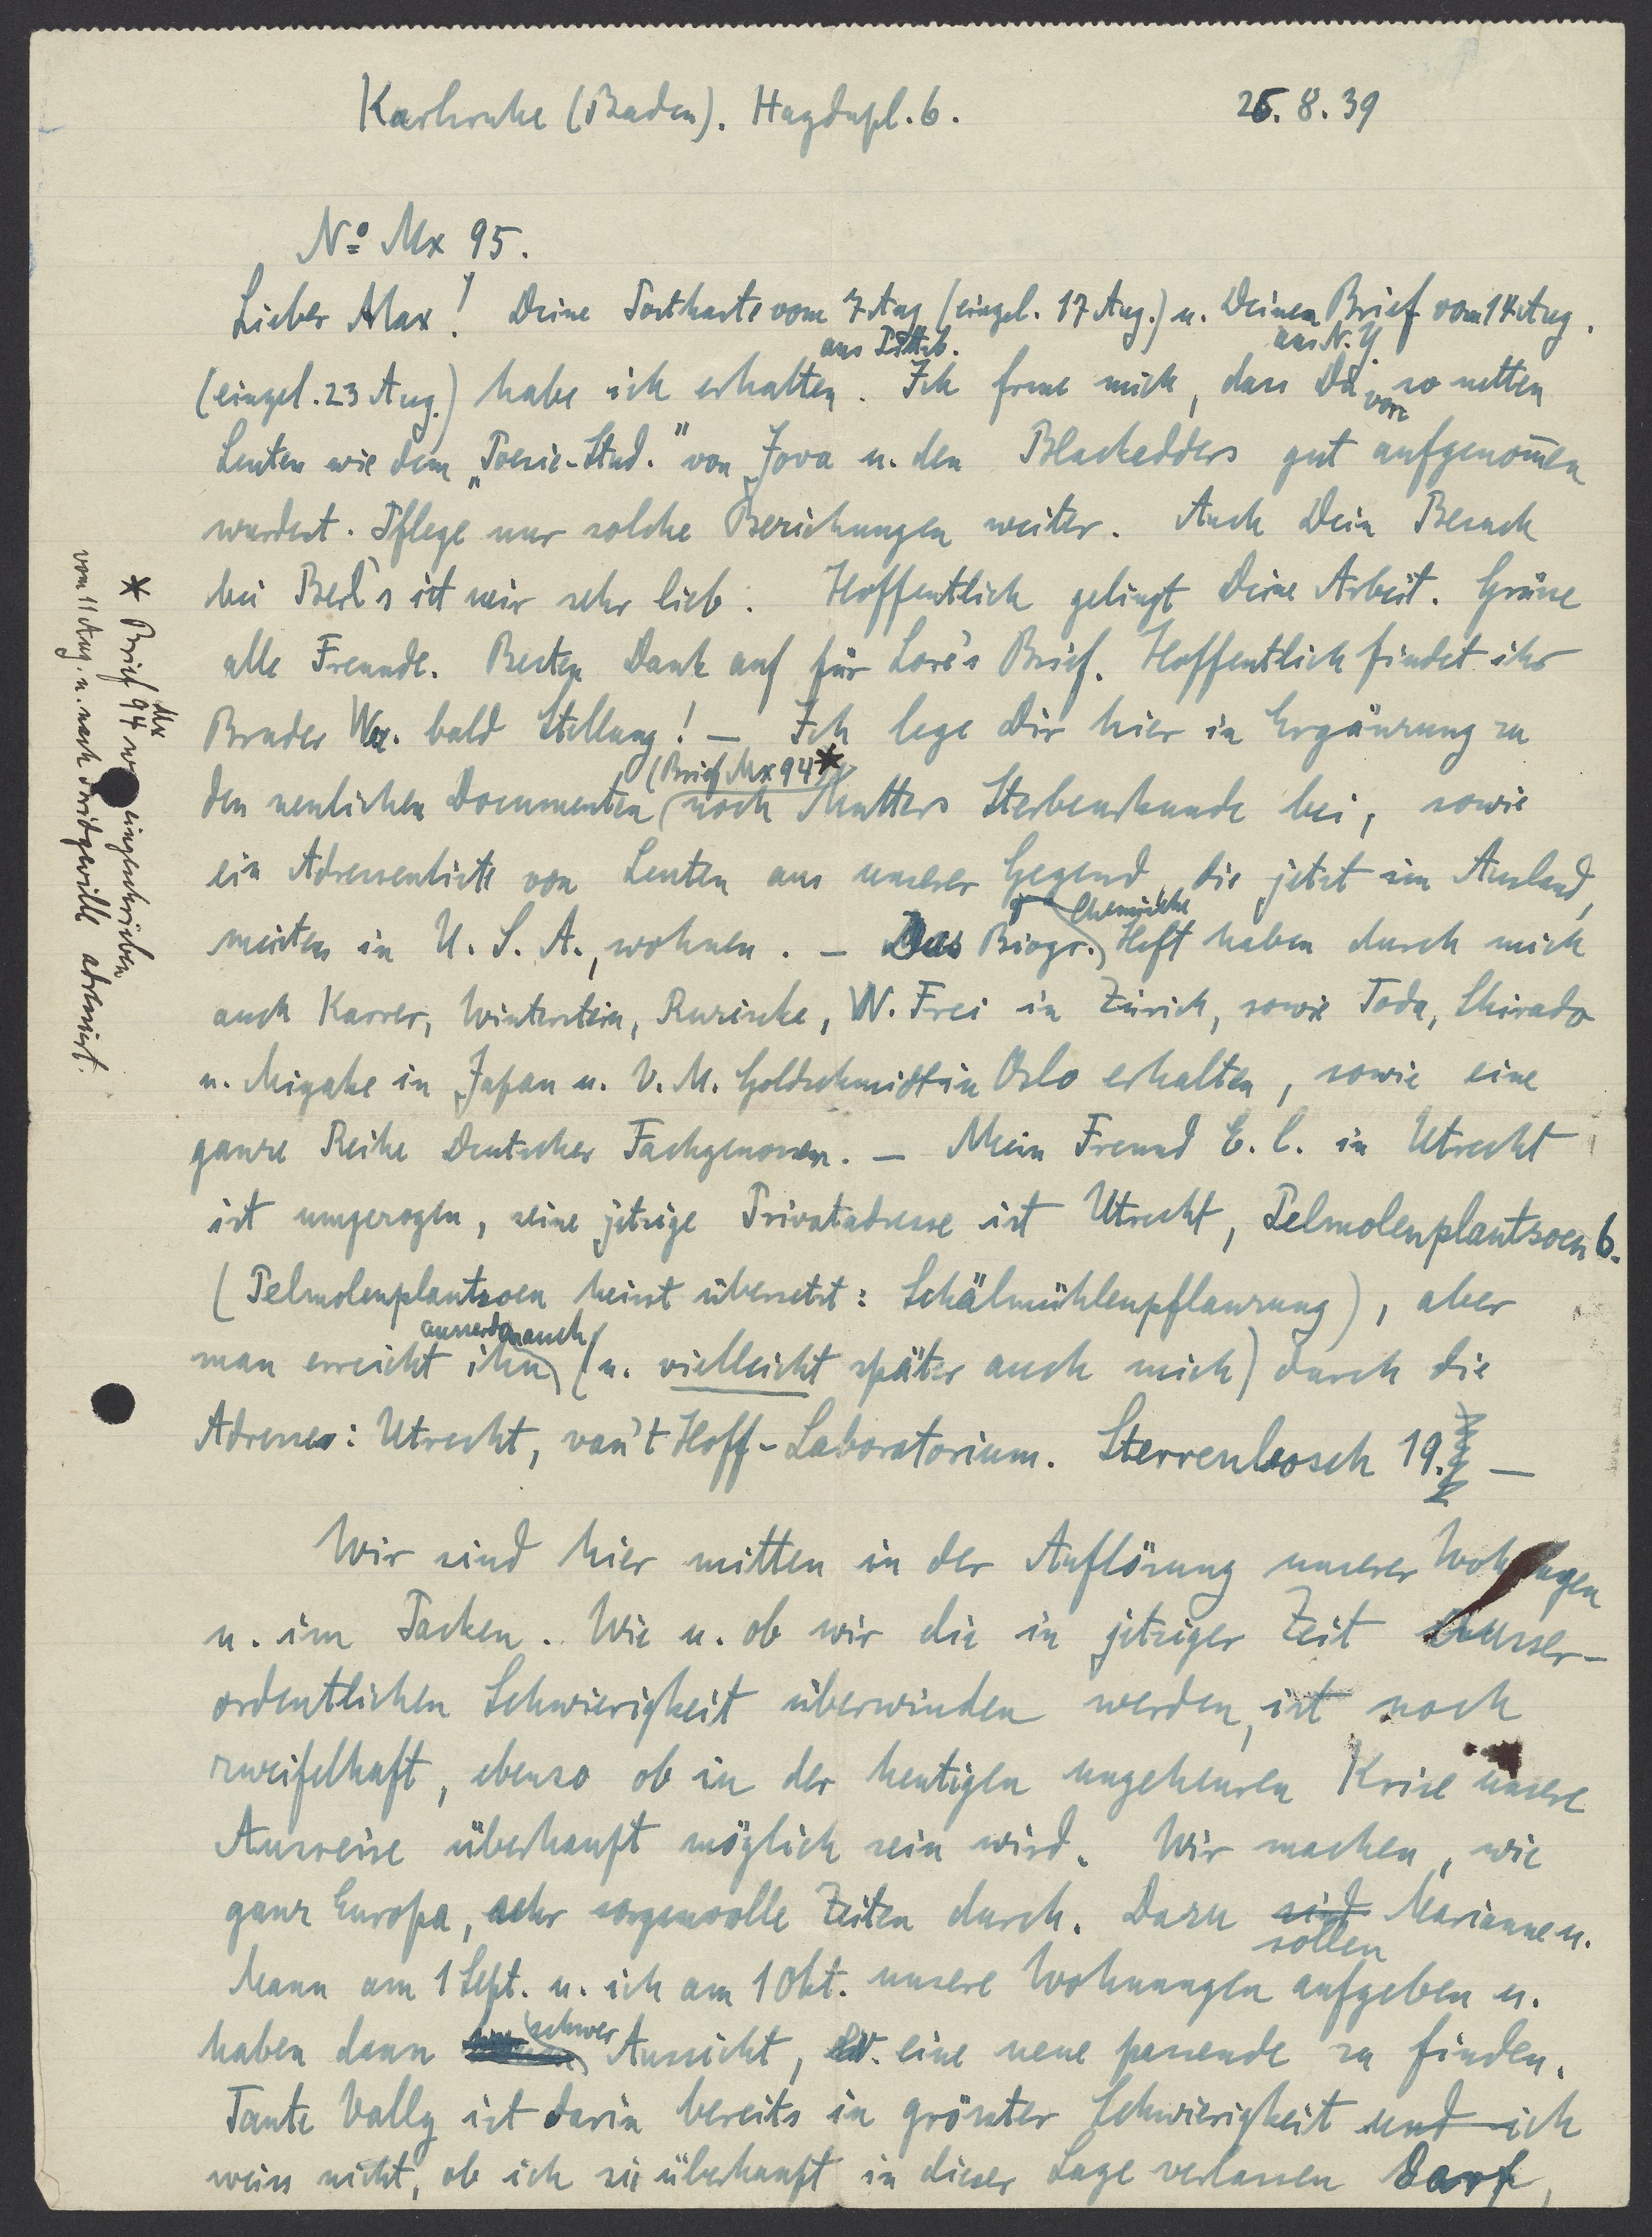 Karlsruhe (Baden). Haydnpl. 6. 26. 8. 39
No Mx 95.
Lieber Max! Deine Postkarte vom 7 Aug (eingel. 17 Aug.) u. Deinen Brief vom 14 Aug.
aus Pittsb. aus N. Y.
(eingel. 23 Aug.) habe ich erhalten. Ich freue mich, dass Du von so netten
Leuten wie dem „Poesie-Stud." von Jova u. den Blackadders gut aufgenom̄en
wurdest. Pflege nur solche Beziehungen weiter. Auch Dein Besuch
bei Berl's ist mir sehr lieb. Hoffentlich gelingt Deine Arbeit. Grüsse
alle Freunde. Besten Dank auf für Lore's Brief. Hoffentlich findet ihr
Bruder bald Stellung! — Ich lege Dir hier in Ergänzung zu
(Brief Mx 94*)
den neulichen Documenten noch Mutters Sterbeurkunde bei, sowie
ein Adressenliste von Leuten aus unserer Gegend, die jetzt im Ausland,
meistens in U. S. A., wohnen. — Das Biogr. Chemische Heft haben durch mich
auch Karrer, Winterstein, Ruzicke, W. Frei in Zürich, sowie Toda, Shirado
u. Miyake in Japan u. V. M. Goldschmidt in Oslo erhalten, sowie eine
ganze Reihe Deutscher Fachgenossen. — Mein Freund E. C. in Utrecht
ist umgezogen, seine jetzige Privatadresse ist Utrecht, Pelmolenplantsoen 6.
(Pelmolenplantsoen heisst übersetzt: Schälmühlenpflanzung), aber
man erreicht ihn ausserdem auch (u. vielleicht später auch mich) durch die
Adresse: Utrecht, van't Hoff-Laboratorium. Sterrenbosch 19. —
Wir sind hier mitten in der Auflösung unserer Wohnungen
u. im Packen. Wie u. ob wir die in jetziger Zeit ausser-
ordentlichen Schwierigkeit überwinden werden, ist noch
zweifelhaft, ebenso ob in der heutigen ungeheuren Krise unsere
Ausreise überhaupt möglich sein wird. Wir machen, wie
ganz Europa, sehr sorgenvolle Zeiten durch. Dazu sind sollen Marianne u.
Mann am 1 Sept. u. ich am 1 Okt. unsere Wohnungen aufgeben u.
haben dann schwer Aussicht, eine neue passende zu finden.
Tante Vally ist darin bereits in grösster Schwierigkeit und ich
weiss nicht, ob ich sie überhaupt in dieser Lage verlassen darf,
* Brief Mx 94 eingeschrieben
vom 11 Aug. u. nach adressiert.